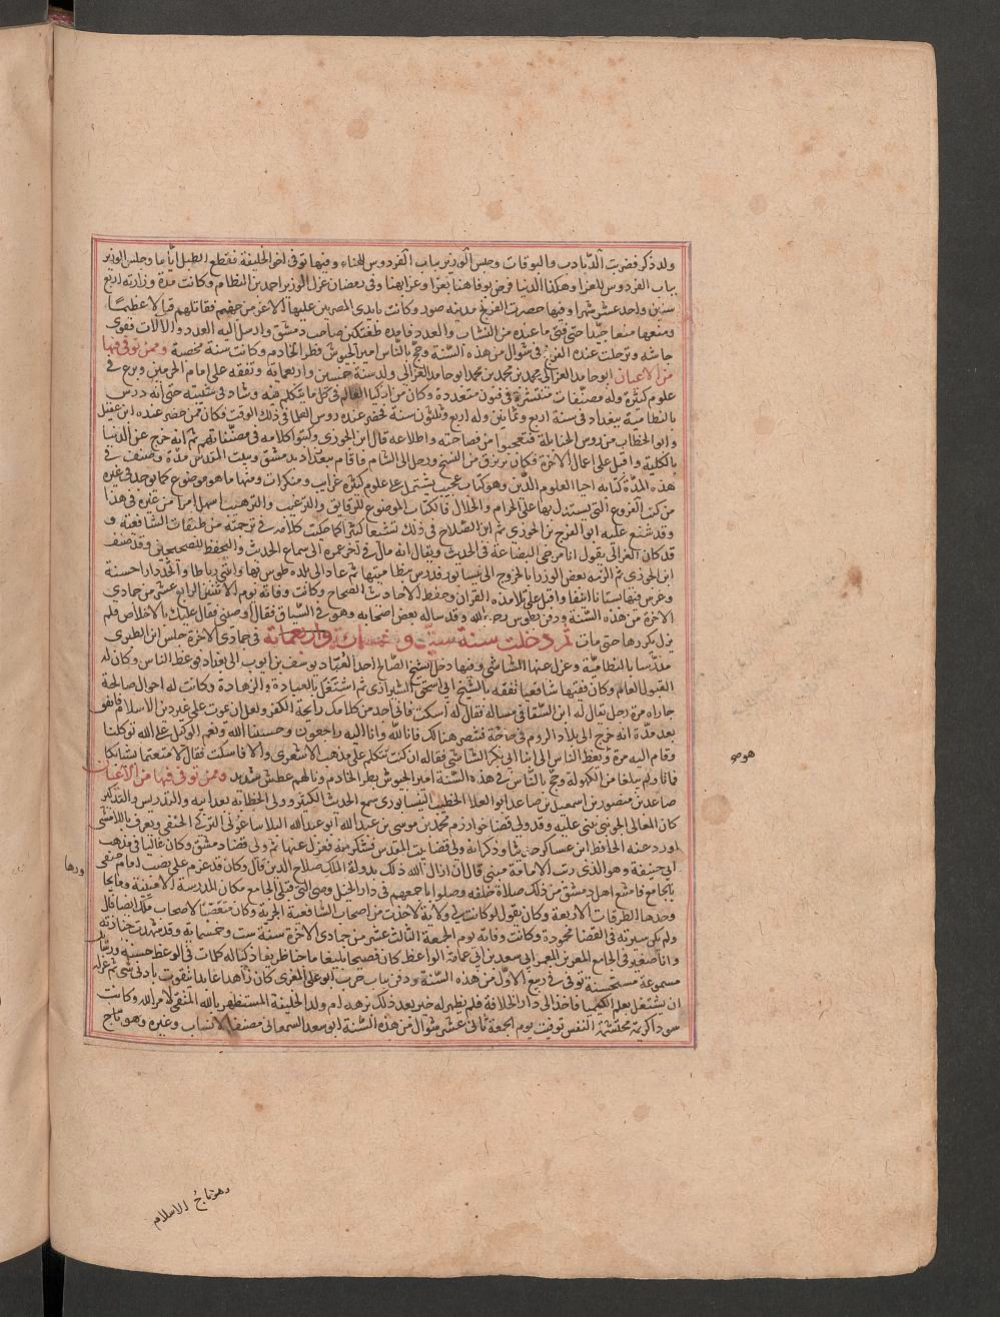 ولد ذكر فضربت الدبادب والبوقات وجلس الوزير بباب الفردوس للهناء وفيها توفى اخو الخليفة فقطع الطبل اياما وجلس الوزير
بباب الفردوس للعزا وهكذا الدنيا فرض يوفاهنا بعزا وعزا بهنا وفى رمضان عزل الوزير احمد بن النظام وكانت مدة وزارته اربع
سنين واحد عشر شهرا وفيها حصرت الفرنج مدينة صور وكانت بايدى المصريين عليها الاعز من جهتهم فقاتلهم قتالا عظيمًا
ومنعها منعا جيدا حتى فنى ما عنده من النشاب والعدد فامده طغتكين صاحب دمشق وارسل اليه العدد والالات فقوى
جاشه وترحلت عنده الفرنج فى شوال من هذه السنة وحج بالناس امير الجيوش قطز الخادم وكانت سنة مخصبة وممن توفى فيها
من الاعيان ابو حامد الغزالى محمد بن محمد بن محمد ابو حامد الغزالى ولد سنة خمسين واربعماية وتفقه على امام الحرمين وبرع فى
علوم كثيرة وله مصنفات منتشرة فى فنون متعددة وكان من اذكيا العالم فى كل ما يتكلم فيه وشاد فى شبيبته حتى انه درس
بالنظامية ببغداد فى سنة اربع وثمانين وله اربع وثلثون سنة فحضر عنده روس العلما فى ذلك الوقت وكان ممن حضر عنده ابن عقيل
وابو الخطاب من روس الحنابلة فتعجبوا من فصاحته واطلاعه قال ابن الجوزى وكتبوا كلامه فى مصنفاتهم ثم انه خرج عن الدنيا
بالكلية واقبل على اعمال الاخرة وكان يرتزق من النسخ ورحل الى الشام فاقام ببغداد بدمشق وبيت المقدس مدة وصنف فى
هذه المدة كتابه احيا العلوم الدين وهو كتاب عجيب يشتمل على علوم كثيرة غرايب ومنكرات ومنها ما هو موضوع كما يوجد فى غيره
من كتب الفروع التى يستدل بها على الحرام والحلال فالكتاب الموضوع للرقايق والترغيب والترهيب اسهل امرا من غيره فى هذا
وقد شنع عليه ابو الفرج بن الجوزى ثم ابن الصلاح فى ذلك تشنيعا كثيرا كما حكيت كلامه فى ترجمته من طبقات الشافعية و
قد كان الغزالى يقول انا مزجى البضاعة فى الحديث ويقال انه مال فى اخر عمره الى سماع الحديث والتحفظ للصحيحين وقد صنف
ابن الجوزى ثم الزمه بعض الوزرا بالخروج الى نيسابور فدرس بنظاميتها ثم عاد الى بلده طوس فيها وابتنى رباطا واتخذ دارا حسنة
وغرس فيها بستانا انيقا واقبل على تلامذة القران وحفظ الاحاديث الصحاح وكانت وفاته يوم الاثنين الرابع عشر من جمادى
الاخرة من هذه السنة ودفن بطوس رحمه الله وقد ساله بعض اصحابه وهو فى السياق فقال اوصنى فقال عليك بالاخلاص فلم
يزل يكررها حتى مات ثم دخلت سنة ست وخمسماية واربعماية فى جمادى الاخرة جلس ابن الطبرى
مدرسا بالنظامية وعزل عنها الشاشى وفيها دخل الشيخ الصالح احد العباد يوسف بن ايوب الى بغداد فوعظ الناس وكان له
القبول العام وكان فقيها شافعيا تفقه بالشيخ ابى اسحق الشيرازى ثم اشتغل بالعبادة والزهادة وكانت له احوال صالحة
جاراه مرة رجل يقال له ابن السقا فى مسالة فقال له اسكت فانى اجد من كلامك رايحة الكفر ولعل ان تموت على غير دين الاسلام فاتفق
بعد مدة انه خرج الى بلاد الروم فى حاجة فتنصر هنالك فانا لله وانا اليه راجعون وحسبنا الله ونعم الوكيل على الله توكلنا
وقام اليه مرة وهو يعظ الناس ابنا ابى بكر الشاشى فقالا له ان كنت تتكلم على مذهب الاشعرى والا فاسكت فقال لا متعتما بشبابكما
فماتا ولم يبلغا من الكهولة وحج بالناس فى هذه السنة امير الجيوش بطر الخادم ونالهم عطش شديد وممن توفى فيها من الاعيان
صاعد بن منصور بن اسمعيل بن صاعد ابو العلا الخطيب النيسابورى سمع الحديث الكثير وولى الخطابة بعد ابيه والتدريس والتذكير
كان المعالى الجوينى يثنى عليه وقد ولى قضا خوارزم محمد بن موسى بن عبد الله ابو عبد الله البلاساغونى التركى الحنفى ويعرف باللامشى
اورد عنه الحافظ ابن عساكر حديثا وذكر انه ولى قضا بيت المقدس فشكو منه فعزل عنها ثم ولى قضا دمشق وكان غاليا فى مذهب
ابى حنيفة وهو الذى رتب الاقامة مثنى قال ان ازال الله ذلك بدولة الملك صلاح الدين قال وكان قد عزم على نصب امام حنفى
بالجامع فامتنع اهل دمشق من ذلك صلاة خلفه وصلوا باجمعهم فى دار الخيل وهى التى قبلى الجامع مكان المدرسة الامينية وما يجا
وحدها الطرقات الاربعة وكان يقول لو كانت لى ولاية لاخذت من اصحاب الشافعية الجزية وكان متغضبا لاصحاب ملك ايضا قال
ولم يكن سيرته فى القضا محمودة وكانت وفاته يوم الجمعة الثالث عشر من جمادى الاخرة سنة ست وخمسماية وقد شهدت جنازته
وانا صغير فى الجامع المعمر بن المعمر ابى سعد بن ابى عمامة الواعظ كان فصيحا بليغا ماجنا ظريفا ذكيا له كلمات فى الوعظ حسنة ورسايل
مسموعة مستحسنة توفى فى ربيع الاول من هذه السنة ودفن بباب حرب ابو على المغرى كان زاهدا عابدا يتقوت بادنى شى ثم عزل
ان يشتغل بعلم الكيميا فاخذ الى دار الخلافة فلم يظهر له خبر بعد ذلك نزهه ام ولد الخليفة المستظهر بالله المتقى لامر الله وكانت
سودا كريمة محتشمة النفس توفيت يوم الجمعة ثانى عشر شوال من هذه السنة ابو سعد السمعانى مصنف الانساب وغيره وهو تاج
ورها
هوص
وهو تاج الاسلام